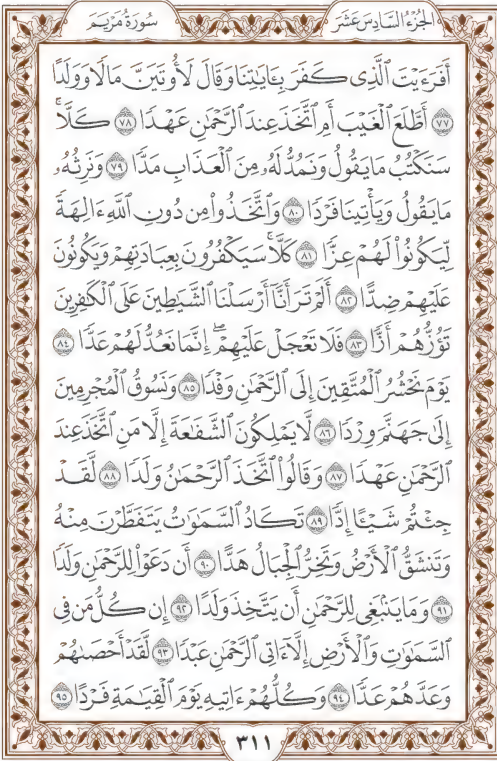 الجُزْءُ السَّادِسَ عَشَرَ
سُورَةُ مَرْيَم
أَفَرَءَيْتَ ٱلَّذِى كَفَرَ بِـَٔايَـٰتِنَا وَقَالَ لَأُوتَيَنَّ مَالًا وَوَلَدًا
٧٧ أَطَّلَعَ ٱلْغَيْبَ أَمِ ٱتَّخَذَ عِندَ ٱلرَّحْمَـٰنِ عَهْدًا ٧٨ كَلَّاۚ
سَنَكْتُبُ مَا يَقُولُ وَنَمُدُّ لَهُۥ مِنَ ٱلْعَذَابِ مَدًّا ٧٩ وَنَرِثُهُۥ
مَا يَقُولُ وَيَأْتِينَا فَرْدًا ٨٠ وَٱتَّخَذُوا۟ مِن دُونِ ٱللَّهِ ءَالِهَةً
لِّيَكُونُوا۟ لَهُمْ عِزًّا ٨١ كَلَّاۚ سَيَكْفُرُونَ بِعِبَادَتِهِمْ وَيَكُونُونَ
عَلَيْهِمْ ضِدًّا ٨٢ أَلَمْ تَرَ أَنَّآ أَرْسَلْنَا ٱلشَّيَـٰطِينَ عَلَى ٱلْكَـٰفِرِينَ
تَؤُزُّهُمْ أَزًّا ٨٣ فَلَا تَعْجَلْ عَلَيْهِمْۖ إِنَّمَا نَعُدُّ لَهُمْ عَدًّا ٨٤
يَوْمَ نَحْشُرُ ٱلْمُتَّقِينَ إِلَى ٱلرَّحْمَـٰنِ وَفْدًا ٨٥ وَنَسُوقُ ٱلْمُجْرِمِينَ
إِلَىٰ جَهَنَّمَ وِرْدًا ٨٦ لَّا يَمْلِكُونَ ٱلشَّفَـٰعَةَ إِلَّا مَنِ ٱتَّخَذَ عِندَ
ٱلرَّحْمَـٰنِ عَهْدًا ٨٧ وَقَالُوا۟ ٱتَّخَذَ ٱلرَّحْمَـٰنُ وَلَدًا ٨٨ لَّقَدْ
جِئْتُمْ شَيْـًٔا إِدًّا ٨٩ تَكَادُ ٱلسَّمَـٰوَٰتُ يَتَفَطَّرْنَ مِنْهُ
وَتَنشَقُّ ٱلْأَرْضُ وَتَخِرُّ ٱلْجِبَالُ هَدًّا ٩٠ أَن دَعَوْا۟ لِلرَّحْمَـٰنِ وَلَدًا
٩١ وَمَا يَنۢبَغِى لِلرَّحْمَـٰنِ أَن يَتَّخِذَ وَلَدًا ٩٢ إِن كُلُّ مَن فِى
ٱلسَّمَـٰوَٰتِ وَٱلْأَرْضِ إِلَّآ ءَاتِى ٱلرَّحْمَـٰنِ عَبْدًا ٩٣ لَّقَدْ أَحْصَىٰهُمْ
وَعَدَّهُمْ عَدًّا ٩٤ وَكُلُّهُمْ ءَاتِيهِ يَوْمَ ٱلْقِيَـٰمَةِ فَرْدًا ٩٥
٣١١